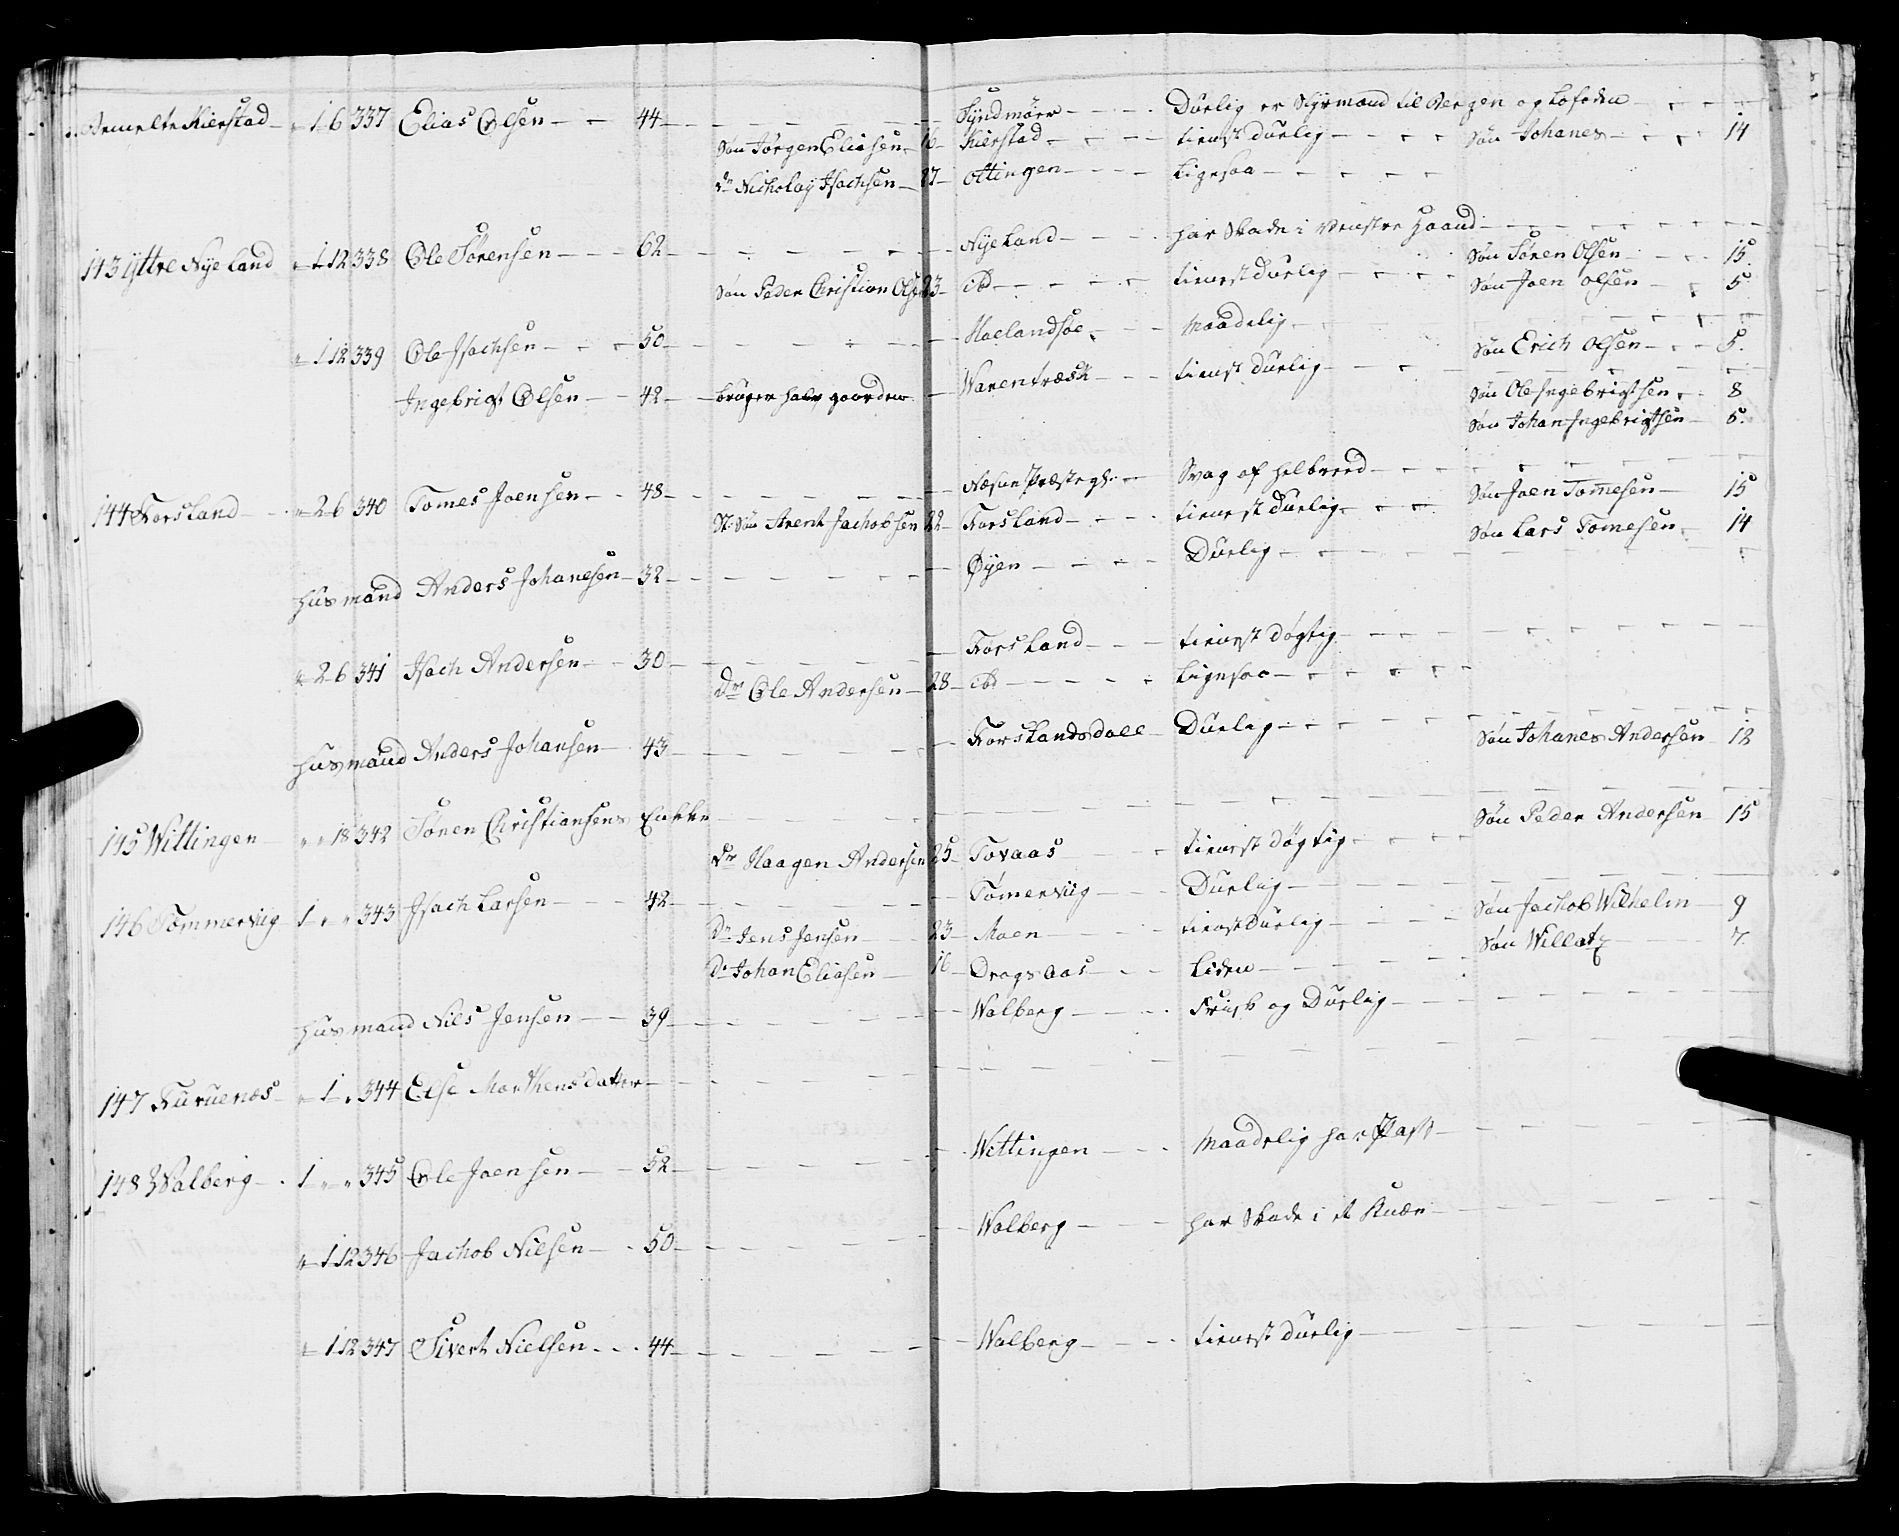 Kierstad - 1 6 337 Elias Olsen - 44 - Syndmöre - Duelig er Styrmand til Bergen og Lofoden
Søn Jørgen Eliasen 16 Kierstad - tienstduelig - Søn Johanes - 14
Dr Nicholay Isachsen - 27 - Ottingen - Ligesaa
143 Yttre Nye Land 1 12 338 Ole Sörensen - 62 - Nye Land - har Skade i Venstre Haand
Søn Peder Christian Ols 23 - ibd - tienst duelig - Søn Sören Olsen - 15
Søn Joen Olsen - 5
1 12 339 Ole Isachsen - 50 - Maadelig - Søn Erich Olsen - 5.
Ingebrigt Olsen - 42 - bruger halv gaarden - tienst duelig - Søn Ole Ingebrigtsen - 8
Søn Johan Ingebrigtsen - 5.
144 Forsland - 2 6 340 Tomes Joensen - 48 - Svag af helbreed - Søn Joen Tomesen - 15
St: Søn Arent Jachobsen 22 - Forsland - tienst duelig - Søn Lars Tomesen - 14
Husmand Anders Johanesen - 32 - Øyen - Duelig
2 6 341 Isach Andersen - 30 - Forsland - tienst døgtig
Dr Ole Andersen - 28 - ibd - Ligesaa
Husmand Anders Johansen - 43 - Forslandsdall - Duelig - Søn Johanes Andersen 12
145 Wittingen - 18 342 Sören Christiansens Enkke - Søn Peder Andersen 15
Dr Haagen Andersen 25 - Tovaas - tienst døgtig
146 Tömmerviig 1 " " 343 Isach Larsen - 42 - Tömerviig - Duelig - Søn Jachob Wilhelm - 9
Dr Jens Jensen - 23 - Moen - tienstduelig - Søn Willatz - 7.
Dr Johan Eliasen - 16 - Dragsaas - Liden
Husmand Nils Jensen - 39 - Walberg - Frisk og Duelig
147 Furuenæs - 1 " 344 Else Marthensdatter
148 Walberg - 1 " " 345 Ole Joensen - 52 - Wittingen - Maadelig har Pass
1 12 346 Jachob Nilsen - 50 - Walberg - har Skade i et Knæe
1 12 347 Sivert Nielsen - 44 - Walberg - tienst duelig